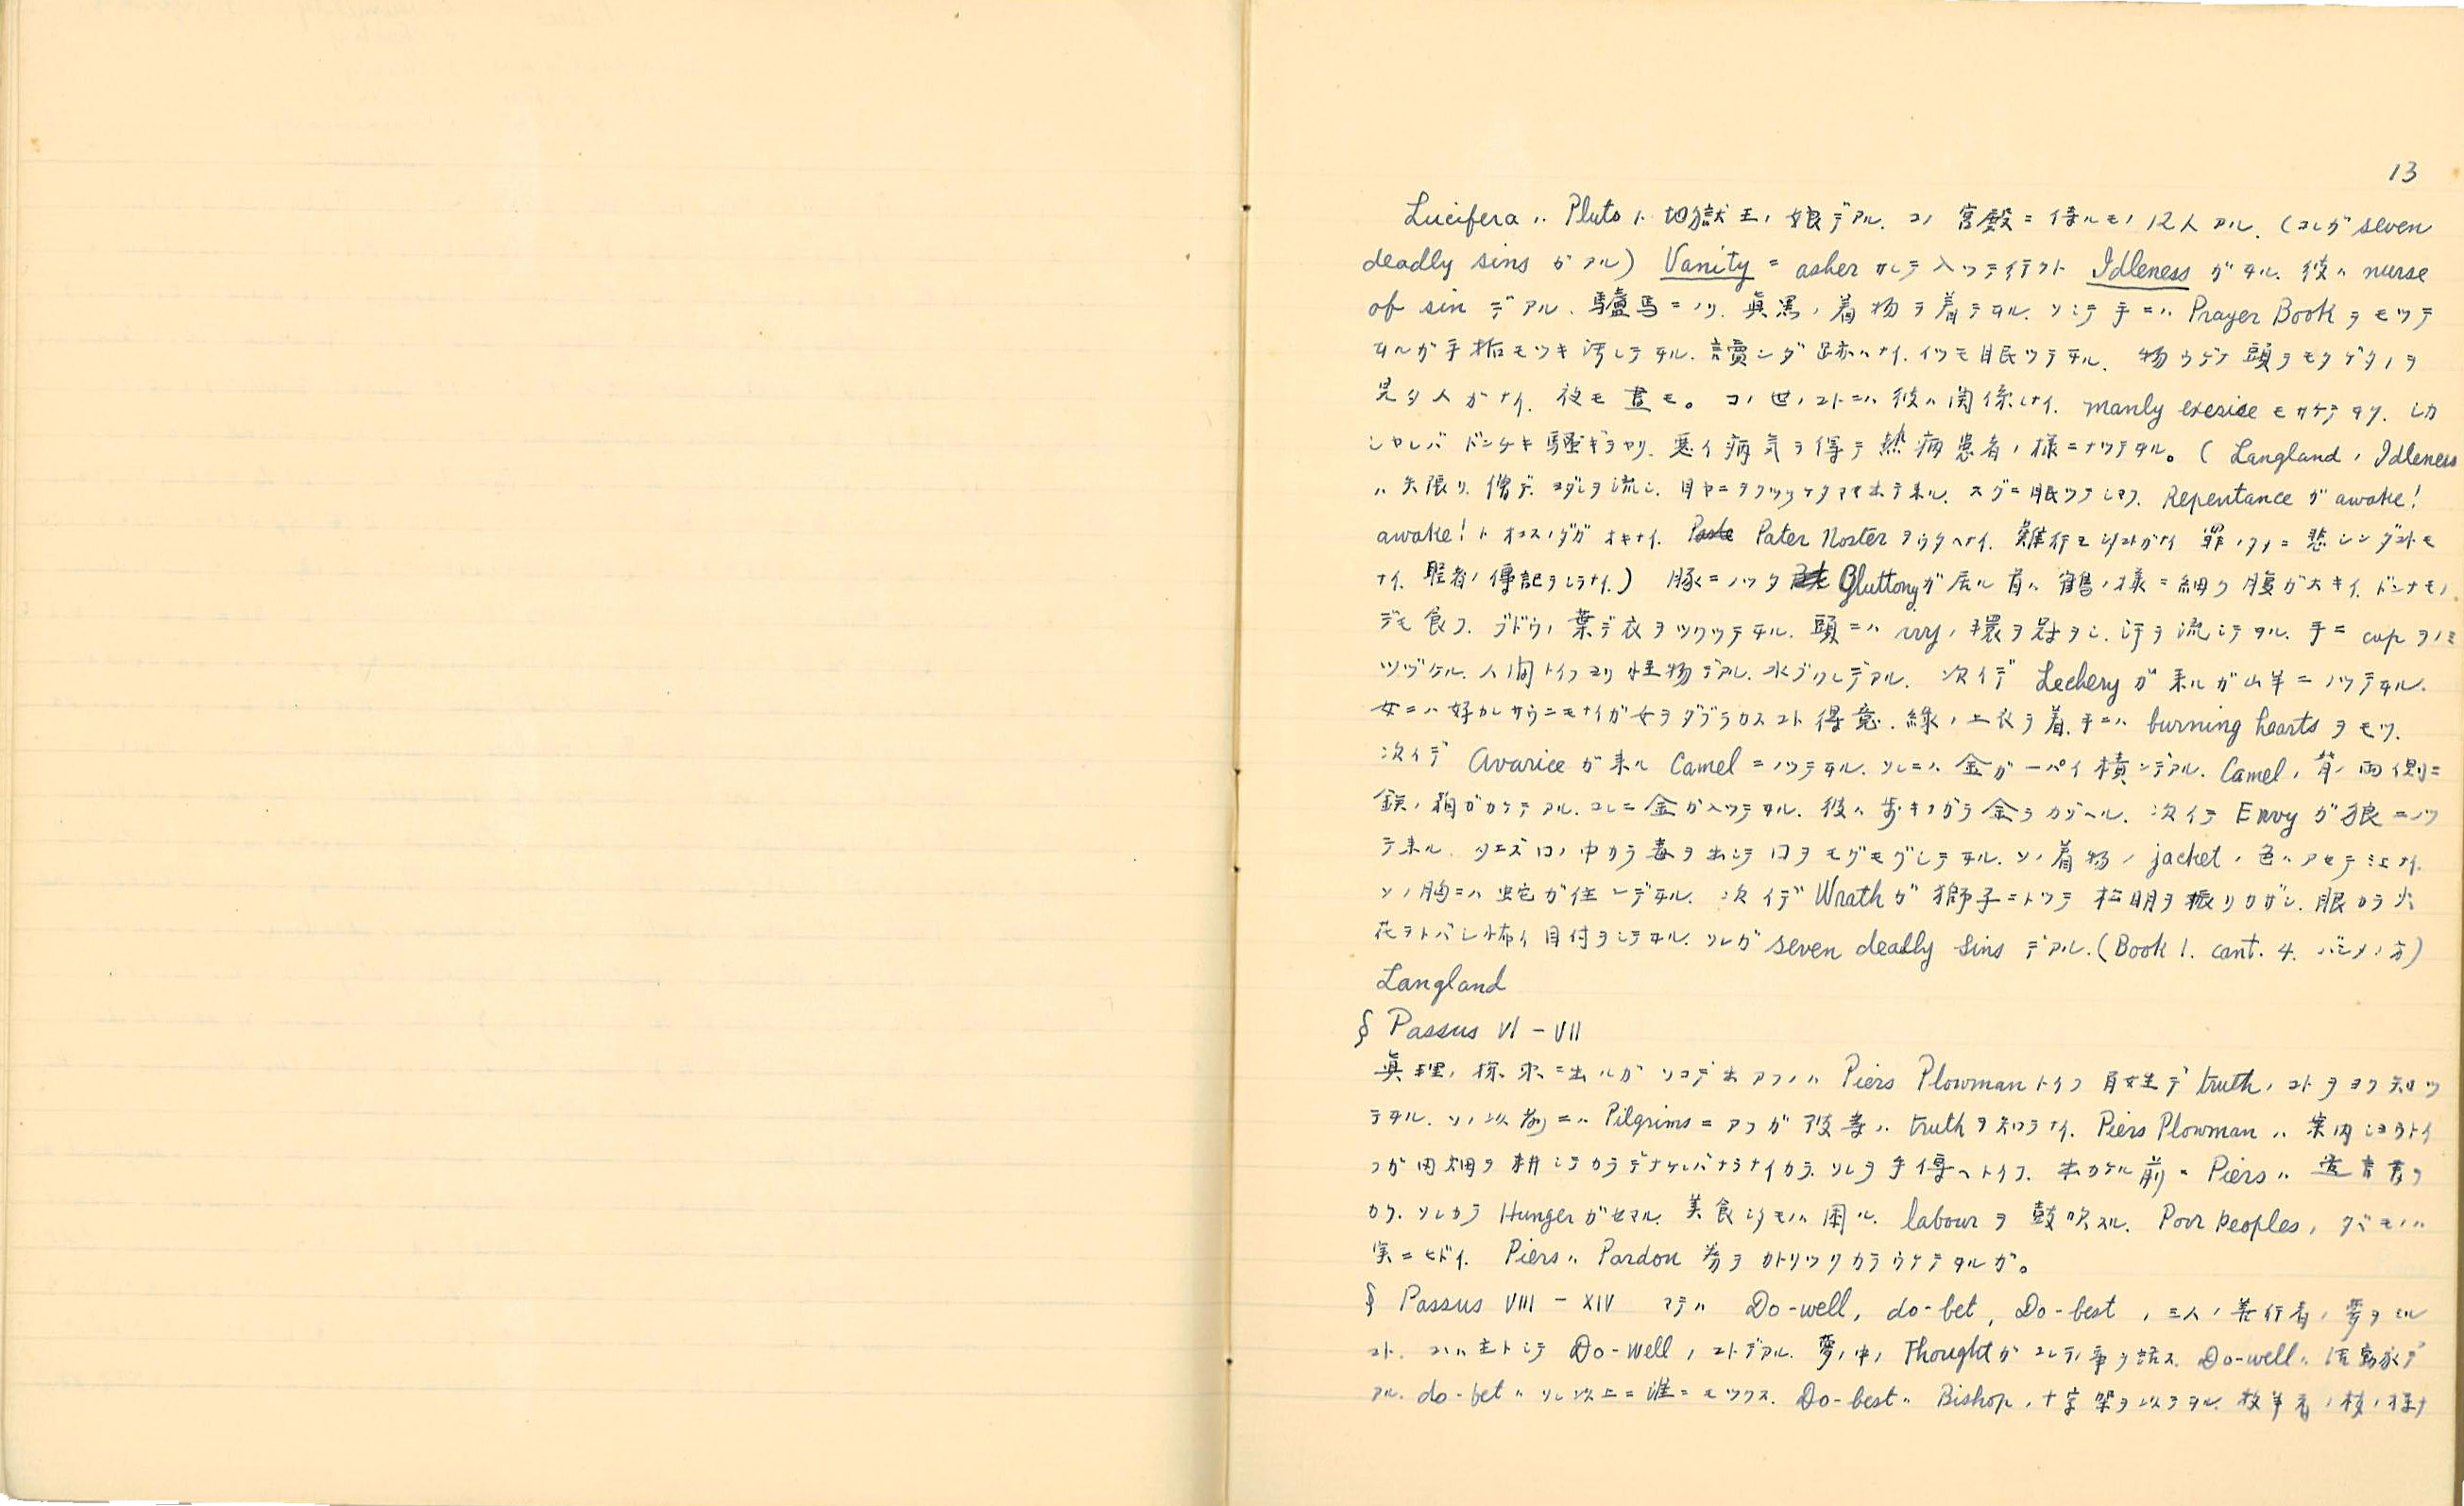 13
Lucifera ハ Pluto ト地獄王ノ娘デアル. コノ宮殿ニ侍ルモノ12人アル. (コレガ seven
deadly sins ガアル) Vanity ニ asher サレテ入ッテ行クト Idleness ガヰル. 彼ハ nurse
of sin デアル. 驢馬ニノリ. 眞黒ノ着物ヲ着テヰル. ソシテ手ニハ Prayer Book ヲモッテ
ヰルガ手垢モツキ汚レテヰル. 讀ンダ跡ハナイ. イツモ眠ッテヰル. 物ウゲナ頭ヲモタゲタノヲ
見タ人ガナイ. 夜モ晝モ。コノ世ノコトニハ彼ハ関係シナイ. manly exesice モサケテヰル. シカ
シヤレバドンチキ騒ギヲヤリ. 悪イ病気ヲ得テ熱病患者ノ様ニナッテヰル。( Langland ノ Idleness
ハ矢張リ僧デ. ヨダレヲ流シ. 目ヤニヲクッツケタママ出テ来ル. スグニ眠ッテシマフ. Repentance ガ awake!
awake! トオコスノダガオキナイ. Pater Noster ヲウタヘナイ. 難行モシタコトガナイ 罪ノタメニ悲シンダコトモ
ナイ. 聖者ノ傳記ヲシラナイ.) 豚ニノッタ Gluttony ガ居ル 首ハ鶴ノ様ニ細ク腹ガ大キイ. ドンナモノ
デモ食フ. ブドウノ葉デ衣ヲツクッテヰル. 頭ニハ ivy ノ環ヲ冠ヲシ. 汗ヲ流シテヰル. 手ニ cup ヲノミ
ツヅケル. 人間トイフヨリ怪物デアル. 水ブクレデアル. 次イデ Lechery ガ来ルガ山羊ニノッテヰル.
女ニハ好カレサウニモナイガ女ヲダブラカスコト得意. 緑ノ上衣ヲ着. 手ニハ burning hearts ヲモツ.
次イデ Avarice ガ来ル Camel ニノッテヰル. ソレニハ金ガ一パイ積ンデアル. Camel ノ背ノ両側ニ
鉄ノ箱ガカケテアル. コレニ金ガ入ッテヰル. 彼ハ歩キナガラ金ヲカゾヘル. 次イデ Envy ガ狼ニノッ
テ来ル. タエズ口ノ中カラ毒ヲ出シテ口ヲモグモグシテヰル. ソノ着物ノ jacket ノ色ハアセテミエナイ.
ソノ胸ニハ蛇ガ住ンデヰル. 次イデ Wrath ガ獅子ニノッテ松明ヲ振リカザシ. 眼カラ火
花ヲトバシ怖イ目付ヲシテヰル. ソレガ seven deadly sins デアル. (Book 1. cant. 4. ハジメノ方)
Langland
§ Passus VI - VII
眞理ノ探求ニ出ルガソコデ出アフノハ Piers Plowman トイフ百姓デ truth ノコトヲヨク知ッ
テヰル. ソノ以前ニハ Pilgrims ニアフガ彼等ハ truth ヲ知ラナイ. Piers Plowman ハ案内シヨウトイ
フガ田畑ヲ耕シテカラデナケレバナラナイカラ. ソレヲ手傳ヘトイフ. 出カケル前ニ Piers ハ遺言書ヲ
カク. ソレカラ Hunger ガセマル. 美食シタモノハ困ル. labour ヲ鼓吹スル. Poor peoples ノタベモノハ
実ニヒドイ. Piers ハ Pardon 券ヲカトリックカラウケテヰルガ。
§ Passus VIII - XIV マデハ Do-well, do-bet, Do-best ノ三人ノ善行者ノ夢ヲミル
コト. コレハ主トシテ Do-well ノコトデアル. 夢ノ中ノ Thought ガコレラノ事ヲ話ス. Do-well ハ活動家デ
アル. do-bet ハソレ以上ニ誰ニモツクス. Do-best ハ Bishop ノ十字架ヲ以テヰル. 牧羊者ノ杖ノ様ナ